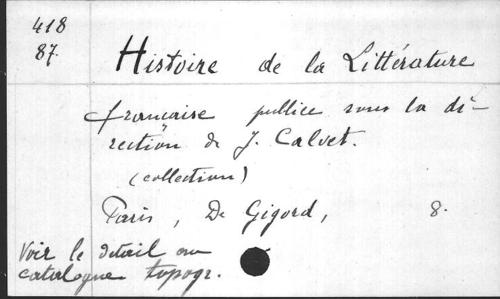 418
87.
Histoire de la Littérature
française publiée sous la di-
rection de J. Calvet.
(collection)
Paris, De Gigord, 8.
Voir le detail au
catalogue topogr.